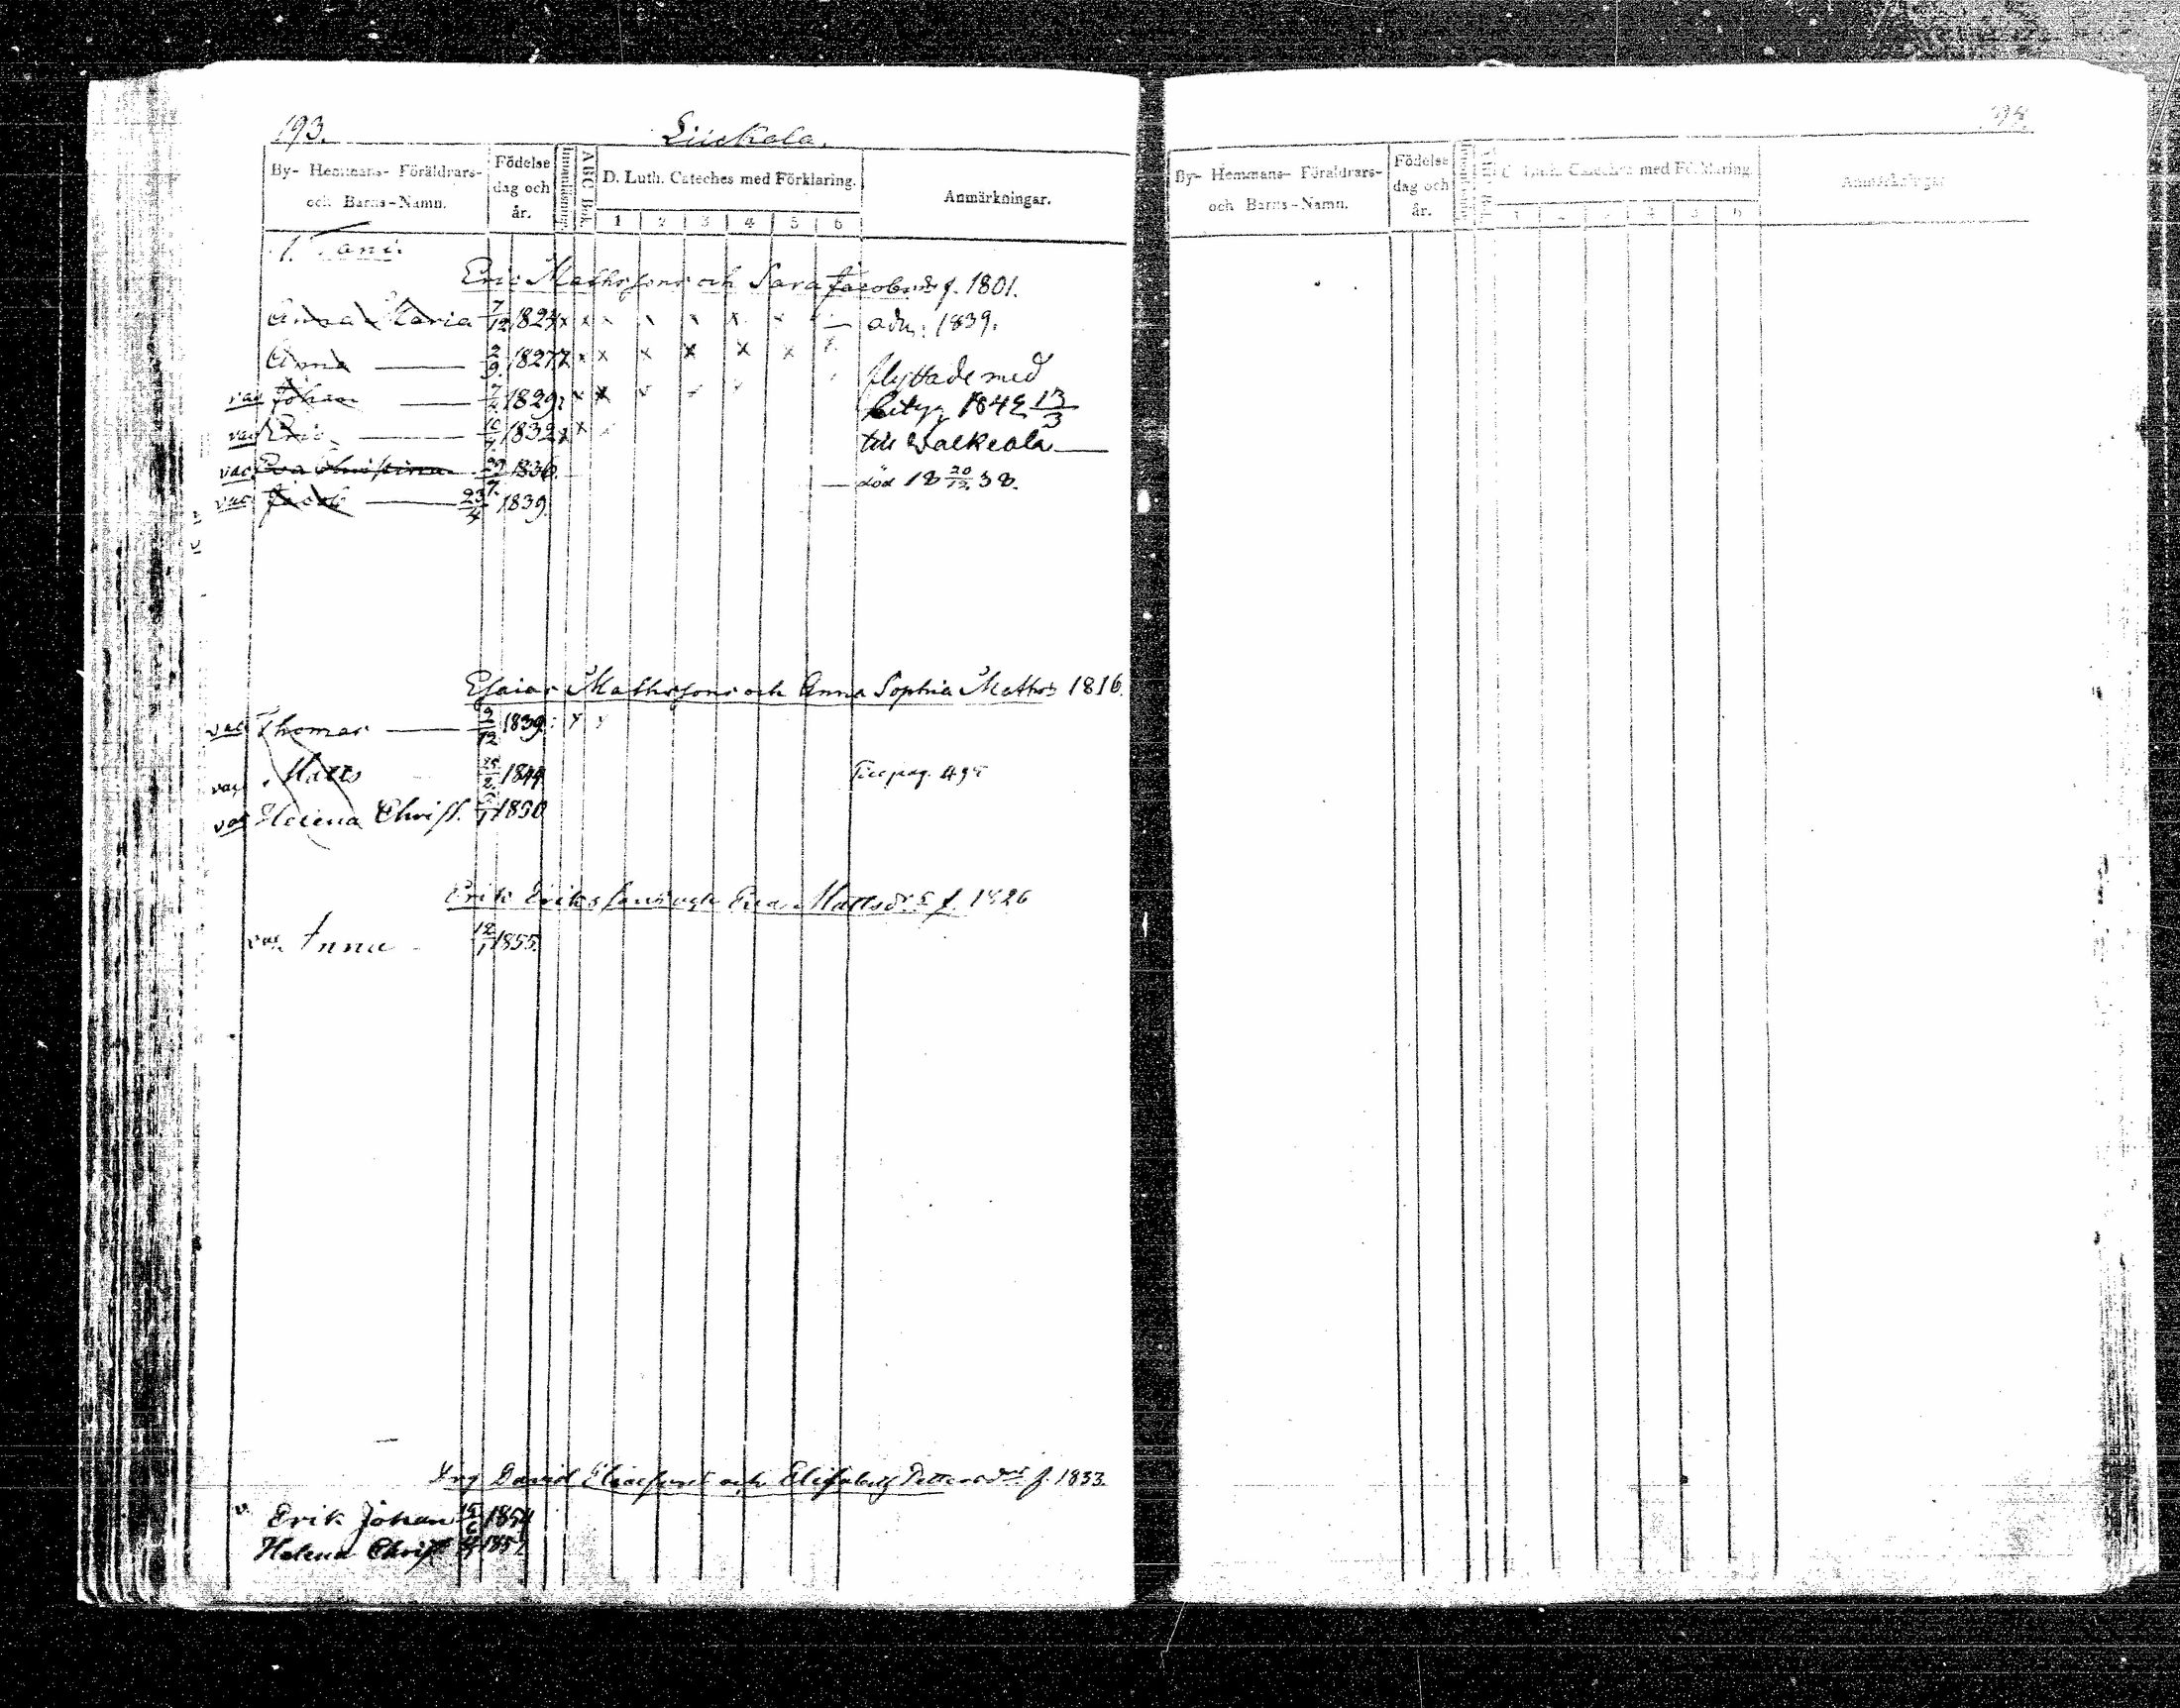 193. Liickala.
By- Hemmans- Föräldrars- och Barns-Namn.
Födelse dag och år.
Innanläsning.
ABC Bok.
D. Luth. Cateches med Förklaring.
1 2 3 4 5 6
Anmärkningar.
1. Tani
Eric Mathssons och Sara Jacobsdr f. 1801.
Anna Maria 7/12 1824 x x x x x x x — adm: 1839.
Anna — 2/9 1827 x x x x x x x
flyttade med
vac Johan — 1829
betyg 1842 13/3
vac Eric — 1832
till Walkeala —
vac Eva Christina 29/7 1836. — död 18 20/12 38.
vac Jacob — 23/4 1839.
Esaias Mathssons och Anna Sophia Mattsdr 1816.
vac Thomas — 9/12 1839
vac Matts 1844 Til pag. 495
vac Helena Christ. 1850
Erik Erikssons och Eva Mattsdr f. 1826
vac Anna 12/1 1855.
Drg David Eliassons och Elisabeth Pettersdr f. 1833.
v. Erik Johan 15/6 1854
Helena Christ 1857
By- Hemmans- Föräldrars- och Barns-Namn.
Födelse dag och år.
D. Luth. Cateches med Förklaring.
1 2 3 4 5 6
Anmärkningar